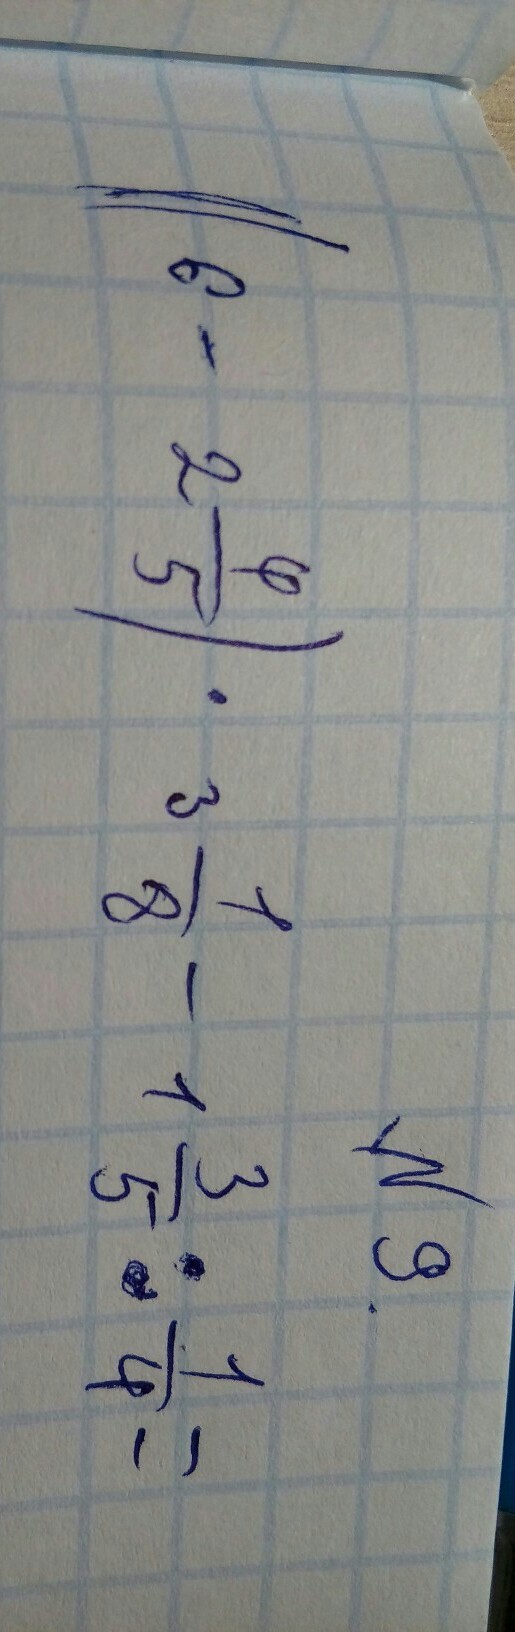 N 9.
(6 - 2 4/5) · 3 1/8 - 1 3/5 : 1/4 =